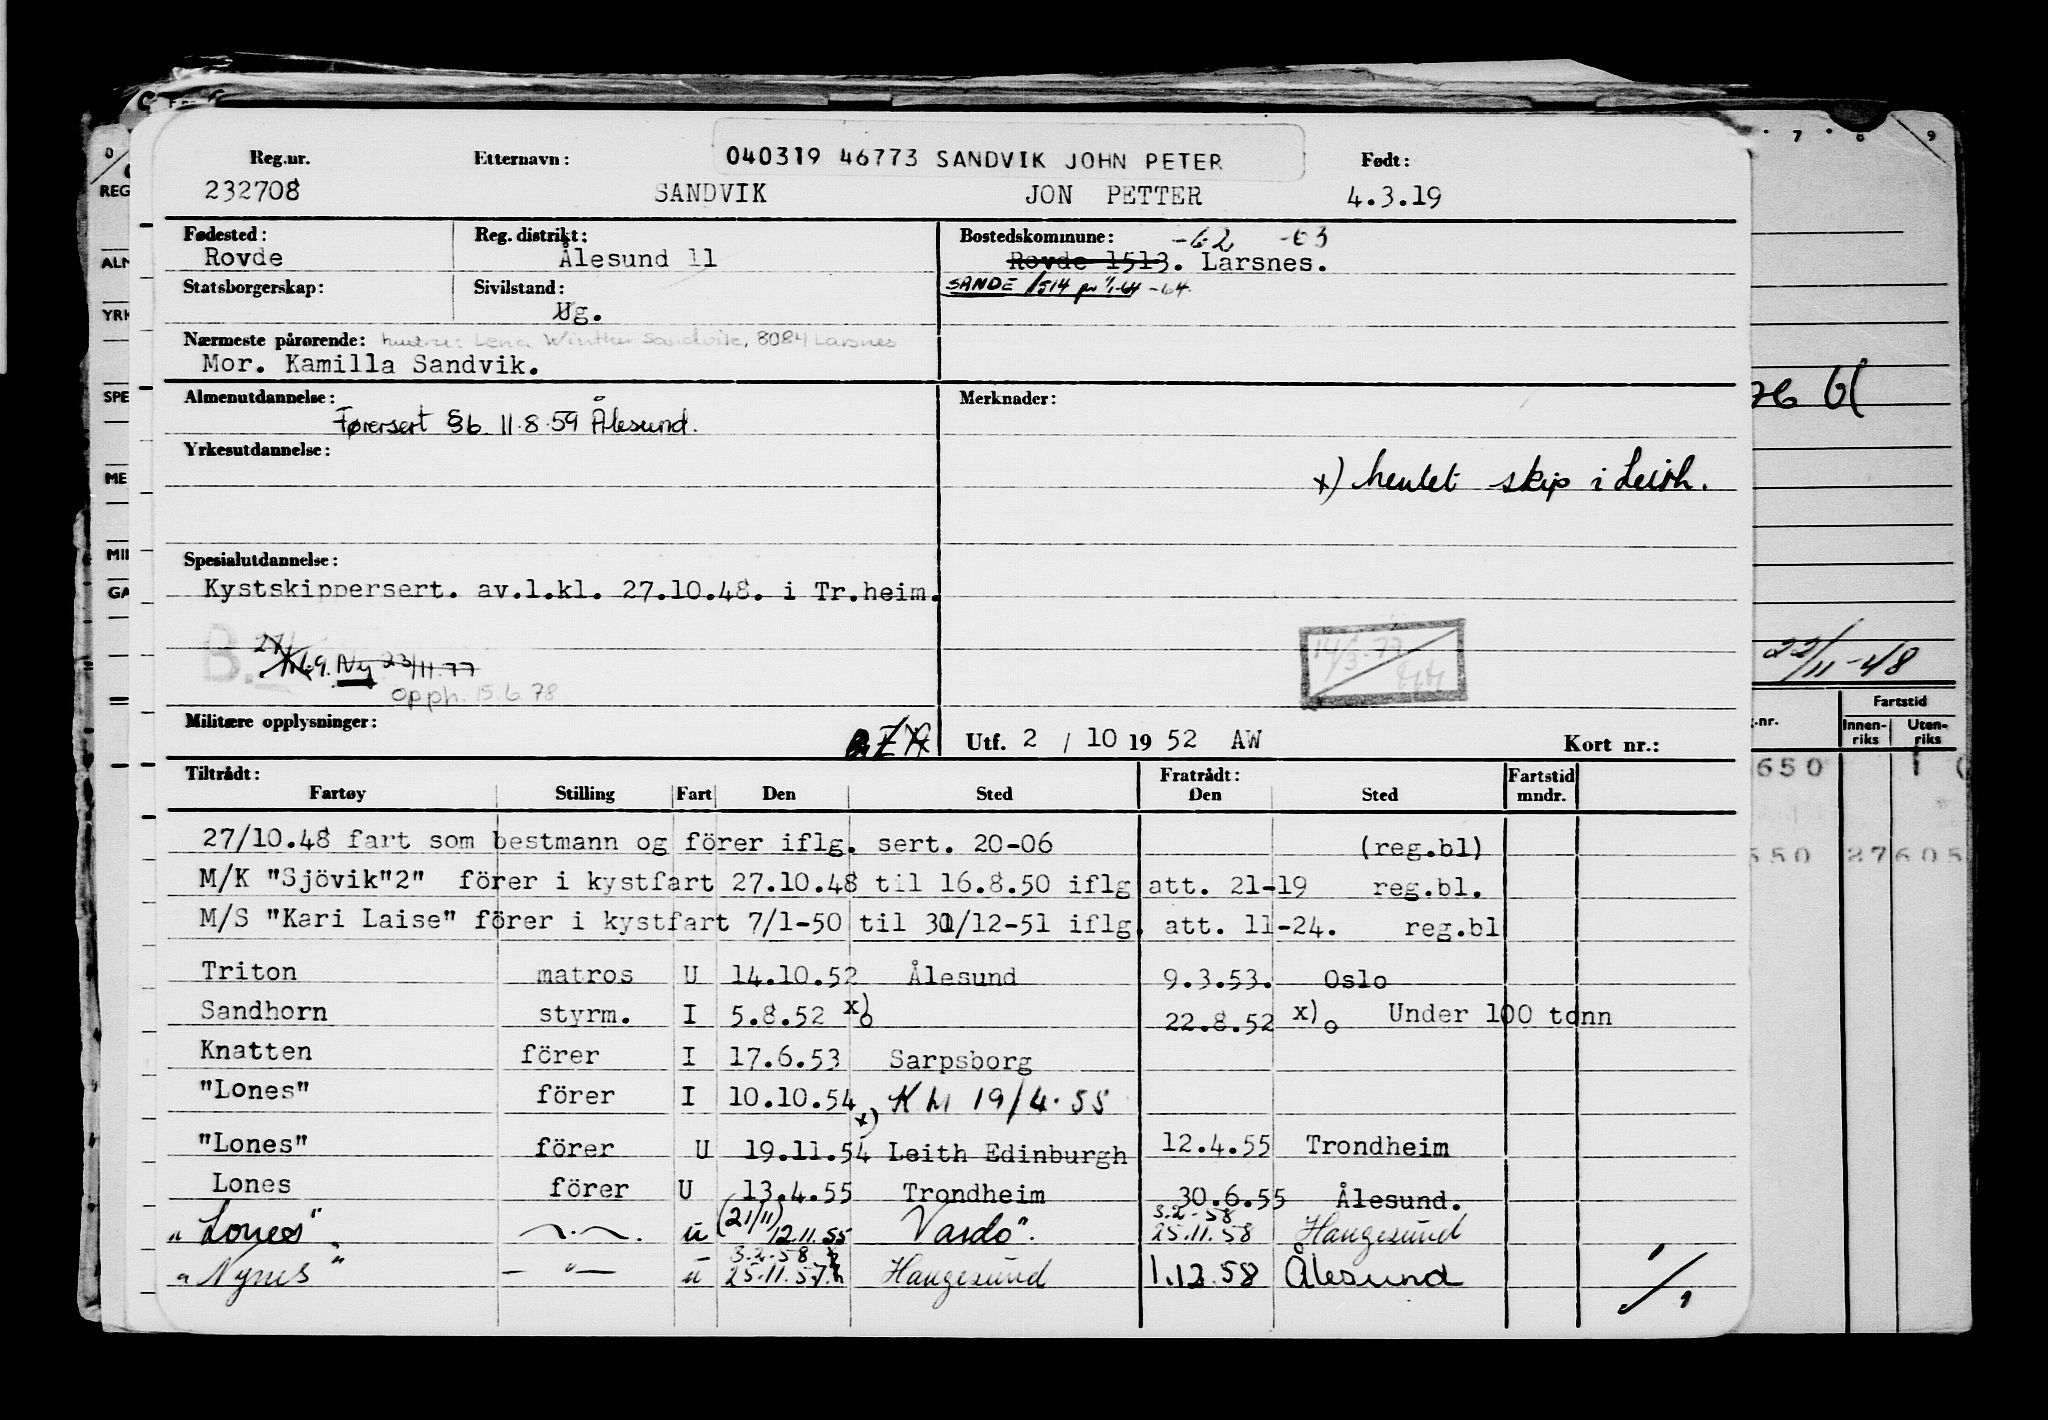 040319 46773 SANDVIK JOHN PETER
Reg.nr. Etternavn: Født:
232708 SANDVIK JON PETTER 4.3.19
Fødested: Reg. distrikt: Bostedskommune: -62 -63
Rovde Ålesund 11 Rovde 1513. Larsnes.
Statsborgerskap: Sivilstand: SANDE 1514 pr 1/1-64 -64
Ug.
Nærmeste pårørende: hustru: Lena Winther Sandvik, 8084 Larsnes
Mor. Kamilla Sandvik.
Almenutdannelse: Merknader:
Førersert §6 11.8.59 Ålesund.
Yrkesutdannelse:
x) hentet skip i Leith.
Spesialutdannelse:
Kystskippersert. av.1.kl. 27.10.48. i Tr.heim.
B. Ny 23/11.77
Opph. 15.6.78
14/3.77
Militære opplysninger: Utf. 2 / 10 19 52 AW Kort nr.:
Tiltrådt: Fratrådt: Fartstid
Fartøy Stilling Fart Den Sted Den Sted mndr.
27/10.48 fart som bestmann og förer iflg. sert. 20-06 (reg.bl)
M/K "Sjövik"2" förer i kystfart 27.10.48 til 16.8.50 iflg att. 21-19 reg.bl.
M/S "Kari Laise" förer i kystfart 7/1-50 til 31/12-51 iflg. att. 11-24. reg.bl
Triton matros U 14.10.52 Ålesund 9.3.53. Oslo
Sandhorn styrm. I 5.8.52 x)o 22.8.52 x)o Under 100 tonn
Knatten förer I 17.6.53 Sarpsborg
"Lones" förer I 10.10.54 19/4.55
"Lones" förer U 19.11.54 x) Leith Edinburgh 12.4.55 Trondheim
Lones förer U 13.4.55 Trondheim 30.6.55 Ålesund.
3.2.58
"Lones" —"— u (21/11) 12.11.55 Vardö 25.11.58 Haugesund
3.2.58
"Nynes" —"— u 25.11.57 Haugesund 1.12.58 Ålesund
7 8 9
REG
ALM
YRK
SPE
ME
MIL
GA
22/11-48
Fartstid
g.nr. Innen-riks Uten-riks
650 1
550 27605